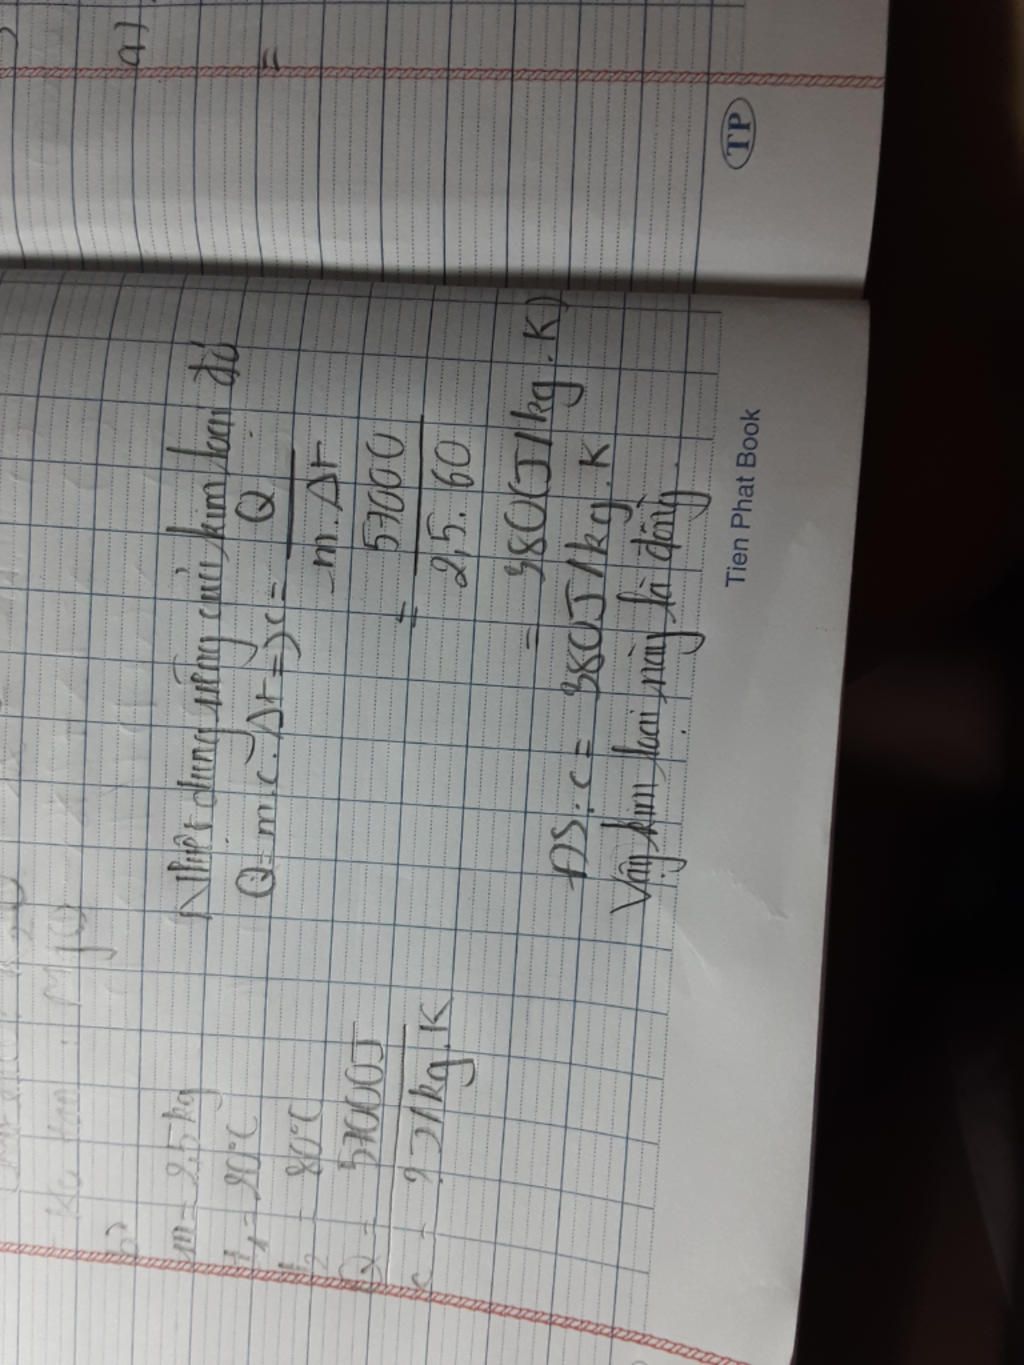 a)
=
TP
b)
m = 2,5 kg
t1 = 20°C
t2 = 80°C
Q = 57000J
c = ? J/kg.K
Nhiệt dung riêng của kim loại đó
Q = m.c.Δt => c = Q / m.Δt
= 57000 / 2,5.60
= 380 (J/kg.K)
ĐS: c = 380J/kg.K
Vậy kim loại này là đồng.
Tien Phat Book